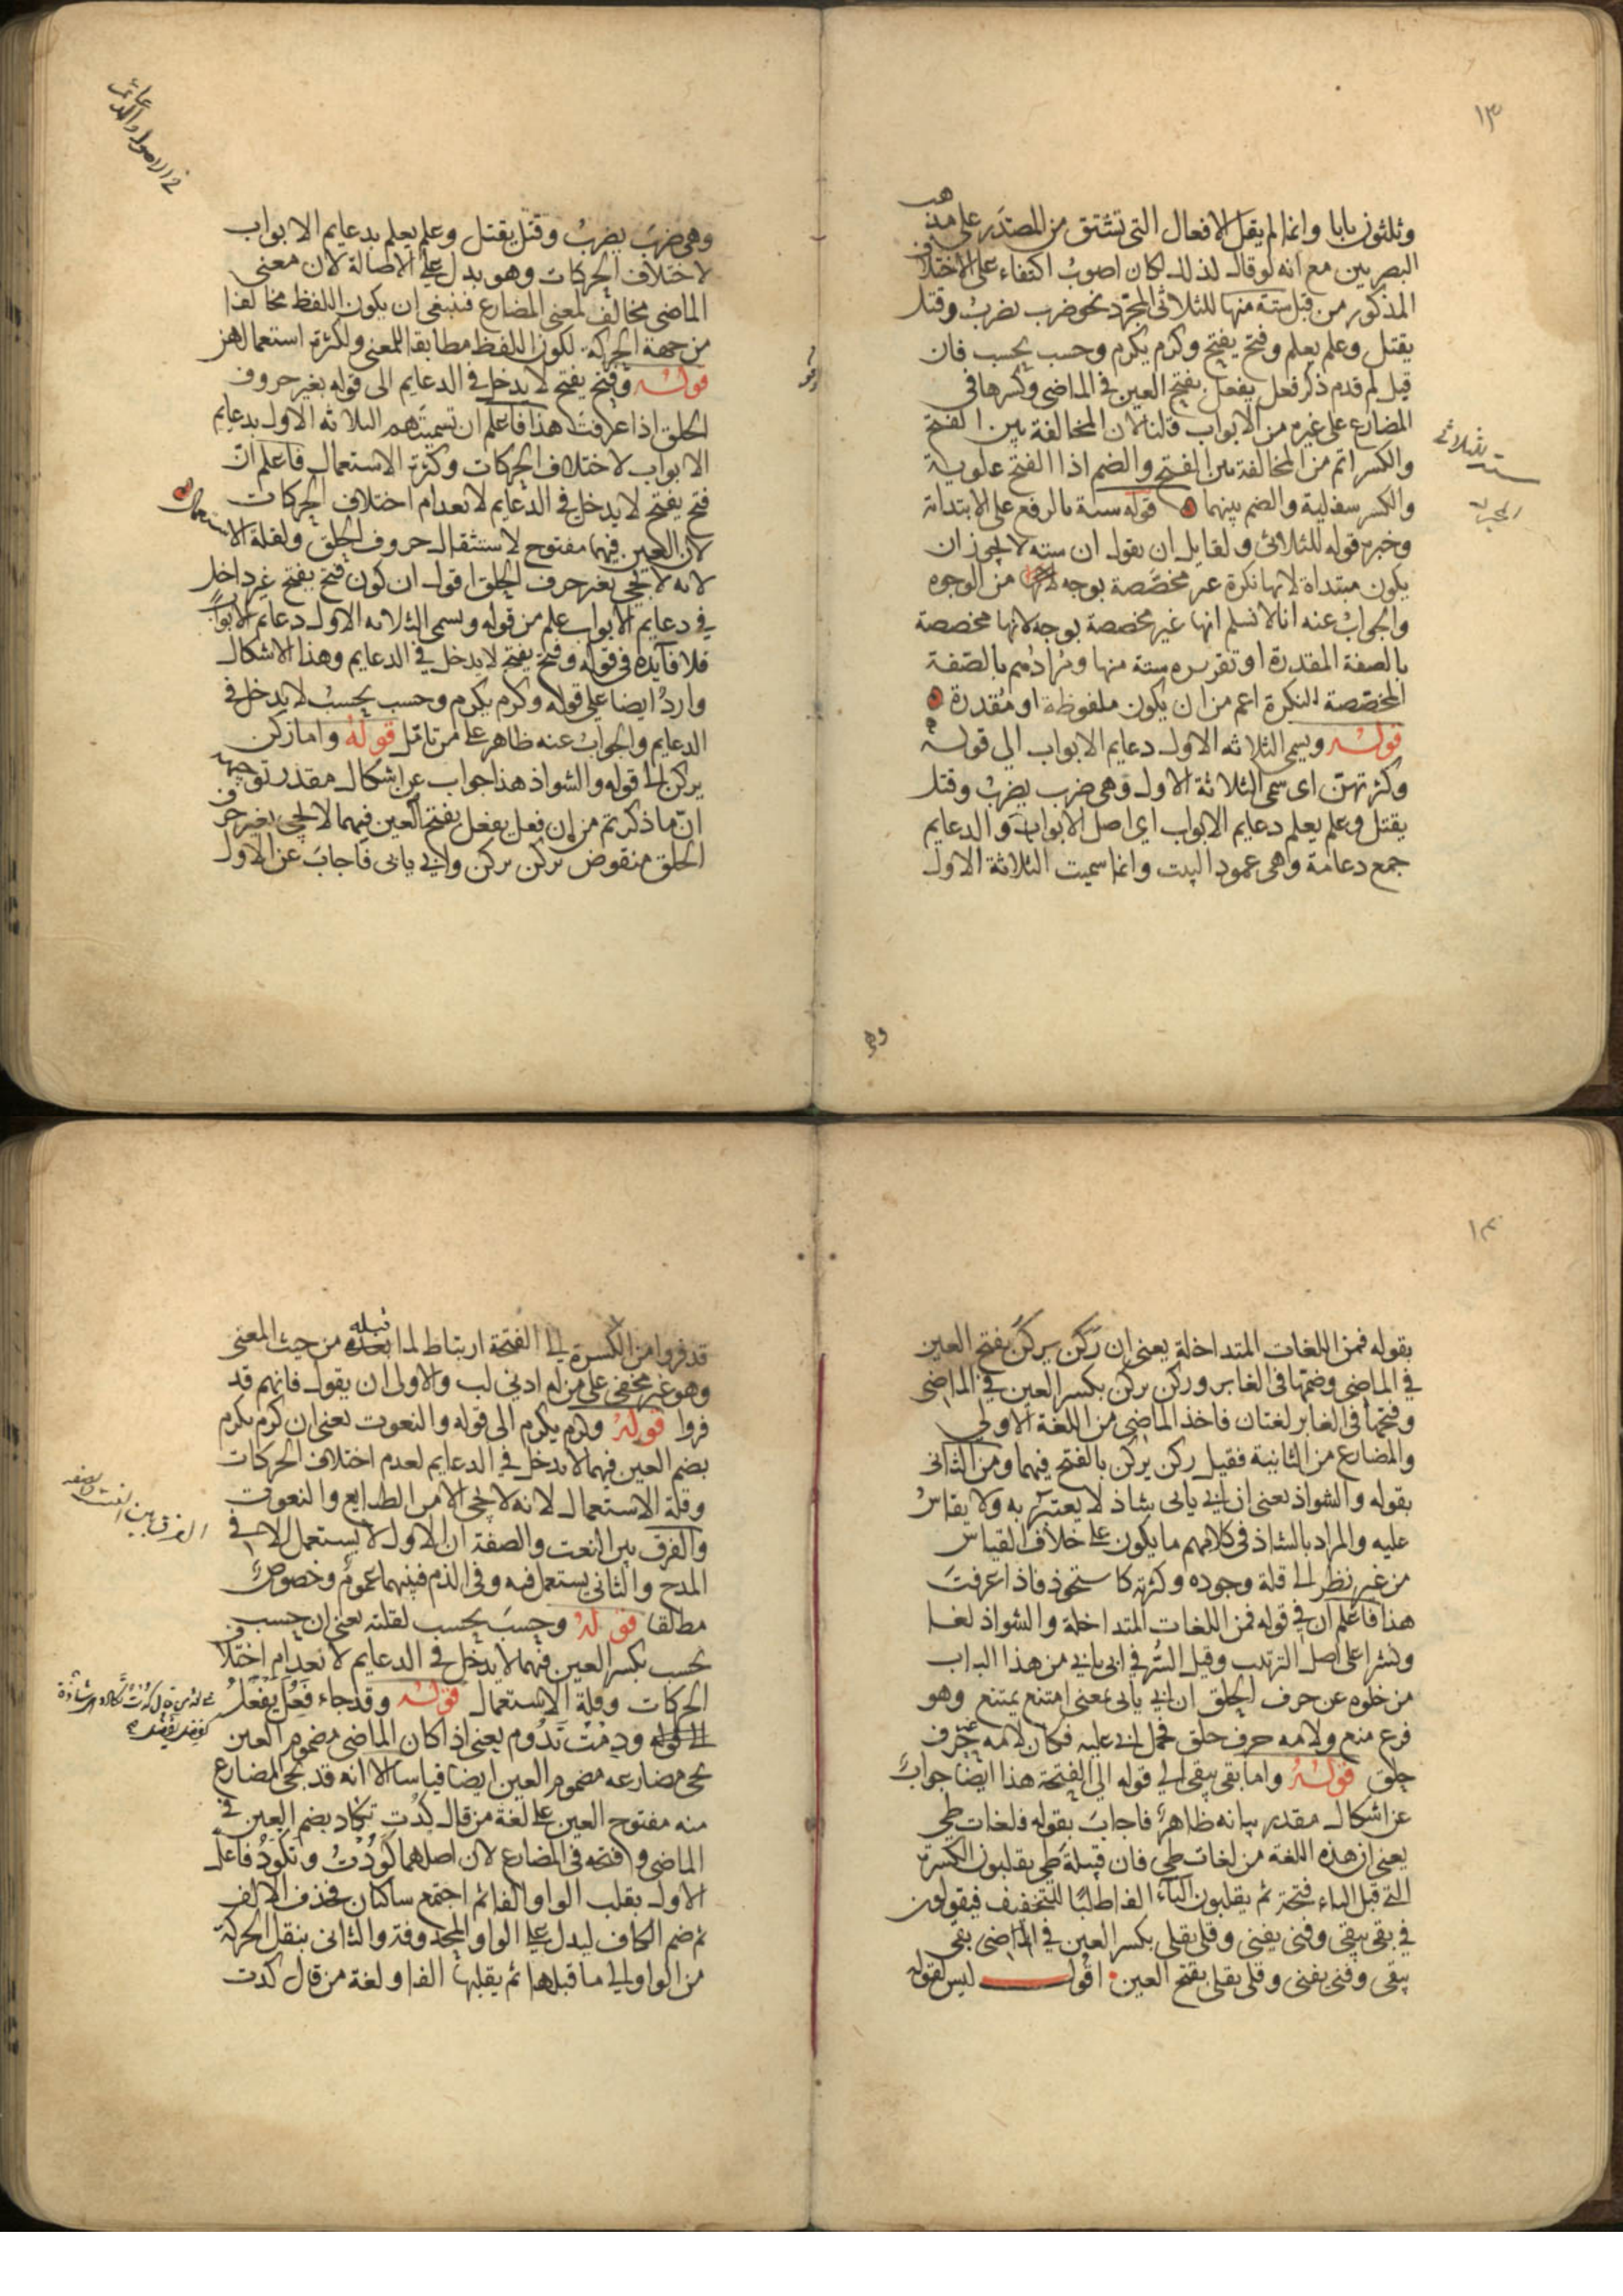 ١٣
وثلثون بابا وانما لم يقل الافعال التى تشتق من المصدر على مذهب
البصريين مع انه لو قال لذلك لكان اصوب اكتفاء على الاختلاف
المذكور من قبل ستة منها للثلاثى المجرد نحو ضرب يضرب وقتل
يقتل وعلم يعلم وفتح يفتح وكرم يكرم وحسب يحسب فان
قيل لم قدم ذكر فعل يفعل بفتح العين فى الماضى وكسرها فى
المضارع على غيره من الابواب قلنا لان المخالفة بين الفتحة
والكسر اتم من المخالفة بين الفتح والضم اذ الفتح علوية
والكسر سفلية والضم بينهما قوله ستة بالرفع على الابتداة
وخبره قوله للثلاثى ولقايل ان يقول ان ستة لا يجوز ان
يكون مبتداة لانها نكرة غير مخصصة بوجه من الوجوه
والجواب عنه انا لا نسلم انها غير مخصصة بوجه لانها مخصصة
بالصفة المقدرة او تقريره ستة منها ومرادهم بالصفة
المخصصة للنكرة اعم من ان يكون ملفوظة او مقدرة
قوله ويسمى الثلاثه الاول دعايم الابواب الى قوله
وكثرتهن اى سمى الثلاثة الاول وهى ضرب يضرب وقتل
يقتل وعلم يعلم دعايم الابواب اى اصل الابواب والدعايم
جمع دعامة وهى عمود البيت وانما سميت الثلاثة الاول
وهى
وهى ضرب يضرب وقتل يقتل وعلم يعلم بدعايم الابواب
لاختلاف الحركات وهو يدل على الاصالة لان معنى
الماضى مخالف لمعنى المضارع فينبغى ان يكون اللفظ مخالفا
من جهة الحركة لكون اللفظ مطابقا للمعنى ولكثرة استعمالهن
قوله وفتح يفتح لا يدخل فى الدعايم الى قوله بغير حروف
الحلق اذا عرفت هذا فاعلم ان تسميتهم الثلاثه الاول بدعايم
الابواب لاختلاف الحركات وكثرة الاستعمال فاعلم ان
فتح يفتح لا يدخل فى الدعايم لانعدام اختلاف الحركات
لان العين فيهما مفتوح لاستثقال حروف الحلق ولقلة الاستعمال
لانه لا يجى بغير حرف الحلق اقول ان كون فتح يفتح غير داخل
فى دعايم الابواب علم من قوله ويسمى الثلاثه الاول دعايم الابواب
فلا فايده فى قوله وفتح يفتح لا يدخل فى الدعايم وهذا الاشكال
وارد ايضا على قوله وكرم يكرم وحسب يحسب لا يدخل فى
الدعايم والجواب عنه ظاهر على من تامل قوله واما ركن
يركن الى قوله والشواذ هذا جواب عن اشكال مقدر توجيهه
ان ما ذكرتم من ان فعل يفعل بفتح العين فيهما لا يجى بغير حرف
الحلق منقوض بركن يركن وابى يابى فاجاب عن الاول
١٤
بقوله فمن اللغات المتداخلة يعنى ان ركن يركن بفتح العين
فى الماضى وضمها فى الغابر وركن يركن بكسر العين فى الماضى
وفتحها فى الغابر لغتان فاخذ الماضى من اللغة الاولى
والمضارع من الثانية فقيل ركن يركن بالفتح فيهما ومن الثانى
بقوله والشواذ يعنى ان ابى يابى شاذ لا يعتبر به ولا يقاس
عليه والمراد بالشاذ فى كلامهم ما يكون على خلاف القياس
من غير نظر الى قلة وجوده وكثرته كاستحوذ فاذا عرفت
هذا فاعلم ان فى قوله فمن اللغات المتداخلة والشواذ لفا
ونشرا على اصل الترتيب وقيل السر فى ابى يابى من هذا الباب
من خلوه عن حرف الحلق ان ابى يابى بمعنى امتنع يمتنع وهو
فرع منع ولامه حرف حلق فحمل ابى عليه فكان لامه حرف
حلق قوله واما بقى يبقى الى قوله الى الفتحة هذا ايضا جواب
عن اشكال مقدر بيانه ظاهر فاجاب بقوله فلغات طى
يعنى ان هذه اللغة من لغات طى فان قبيلة طى يقلبون الكسرة
التى قبل الياء فتحة ثم يقلبون الياء الفا طلبا للتخفيف فيقولون
فى بقى يبقى وفنى يفنى وقلى يقلى بكسر العين فى الماضى بقى
يبقى وفنى يفنى وقلى يقلى بفتح العين اقول ليس لقوله
قد فروا من الكسرة الى الفتحة ارتباط لما بعده قبله من حيث المعنى
وهو غير مخفى على من له ادنى لب والاولى ان يقول فانهم قد
فروا قوله وكرم يكرم الى قوله والنعوت يعنى ان كرم يكرم
بضم العين فيهما لا يدخل فى الدعايم لعدم اختلاف الحركات
وقلة الاستعمال لانه لا يجى الا من الطبايع والنعوت
والفرق بين النعت والصفة ان الاول لا يستعمل الا فى
المدح والثانى يستعمل فيه وفى الذم فبينهما عموم وخصوص
مطلقا قوله وحسب يحسب لقلته يعنى ان حسب
يحسب بكسر العين فيهما لا يدخل فى الدعايم لانعدام اختلاف
الحركات وقلة الاستعمال قوله وقد جاء فعل يفعل
الى قوله ودمت تدوم يعنى اذا كان الماضى مضموم العين
يجى مضارعه مضموم العين ايضا قياسا الا انه قد يجى المضارع
منه مفتوح العين على لغة من قال كدت تكاد بضم العين فى
الماضى وفتحه فى المضارع لان اصلهما كودت وتكود فاعل
الاول بقلب الواو الفا ثم اجتمع ساكنان فحذف الالف
ثم ضم الكاف ليدل على الواو المحذوفة والثانى بنقل الحركة
من الواو الى ما قبلها ثم يقلبها الفا ولغة من قال كدت
الفرق بين النعت والصفه